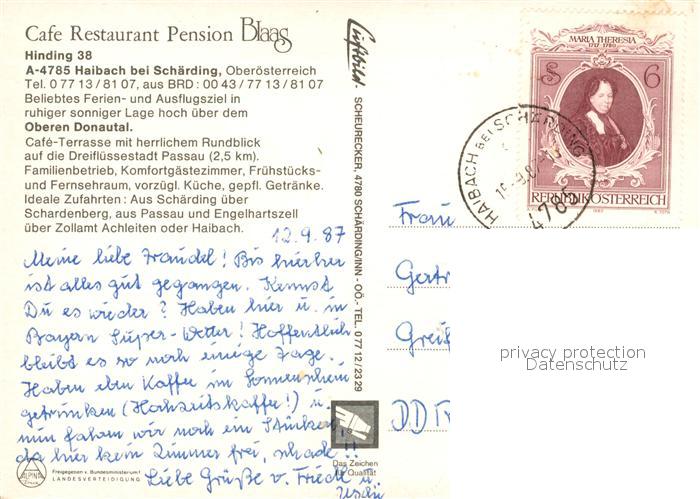 Cafe Restaurant Pension Blaas
Hinding 38
A-4785 Haibach bei Schärding, Oberösterreich
Tel. 0 77 13 / 81 07, aus BRD: 00 43 / 77 13 / 81 07
Beliebtes Ferien- und Ausflugsziel in
ruhiger sonniger Lage hoch über dem
Oberen Donautal.
Café-Terrasse mit herrlichem Rundblick
auf die Dreiflüssestadt Passau (2,5 km).
Familienbetrieb, Komfortgästezimmer, Frühstücks-
und Fernsehraum, vorzügl. Küche, gepfl. Getränke.
Ideale Zufahrten: Aus Schärding über
Schardenberg, aus Passau und Engelhartszell
über Zollamt Achleiten oder Haibach.
12.9.87
Meine liebe Traudel! Bis hierher
ist alles gut gegangen. Kennst
Du es wieder? Haben hier u. in
Bayern Super-Wetter! Hoffentlich
bleibt es so noch einige Tage.
Haben eben Kaffee im Sonnenschein
getrunken (Hochzeitskaffee!) u.
nun fahren wir noch ein Stückerl,
da hier kein Zimmer frei, schade!!
Liebe Grüße v. Friedl u.
Uschi
ALPINA
Freigegeben v. Bundesministerium f.
LANDESVERTEIDIGUNG
Luftbild
SCHEURECKER, 4780 SCHÄRDING/INN - OÖ. - TEL. 0 77 12 / 23 29
Das Zeichen
für Qualität
MARIA THERESIA
1717 - 1780
S 6
REPUBLIK ÖSTERREICH
HAIBACH BEI SCHÄRDING
4785
Frau
Gertr
Greif
DDR
privacy protection
Datenschutz